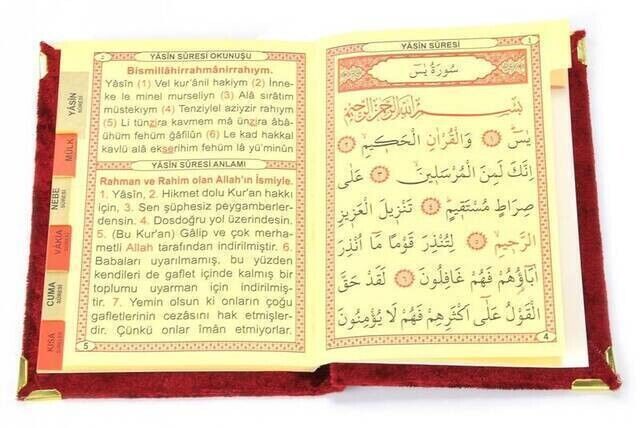 YÂSİN
SÛRESİ
MÜLK
NEBE
SÛRESİ
VAKIA
CUMA
SÛRESİ
KISA
YÂSİN SÛRESİ OKUNUŞU
Bismillâhirrahmânirrahıym.
Yâsîn (1) Vel kur'ânil hakiym (2) İnne-
ke le minel murseliyn (3) Alâ sirâtim
müstekıym (4) Tenziylel aziyzir rahıym
(5) Li tünzira kavmem mâ ünzira âbâ-
ühüm fehüm ğâfilûn (6) Le kad hakkal
kavlü alâ ekserihim fehüm lâ yü'minûn
YÂSİN SÛRESİ ANLAMI
Rahman ve Rahim olan Allah'ın İsmiyle.
1. Yâsîn, 2. Hikmet dolu Kur'an hakkı
için, 3. Sen şüphesiz peygamberler-
densin. 4. Dosdoğru yol üzerindesin.
5. (Bu Kur'an) Gâlip ve çok merha-
metli Allah tarafından indirilmiştir. 6.
Babaları uyarılmamış, bu yüzden
kendileri de gaflet içinde kalmış bir
toplumu uyarman için indirilmiş-
tir. 7. Yemin olsun ki onların çoğu
gafletlerinin cezasını hak etmişler-
dir. Çünkü onlar îmân etmiyorlar.
5
YÂSİN SÛRESİ
سُورَةُ يٰسٓ
بِسْمِ اللّٰهِ الرَّحْمٰنِ الرَّحِيمِ
يٰسٓ ﴿١﴾ وَالْقُرْاٰنِ الْحَكِيمِ ﴿٢﴾
اِنَّكَ لَمِنَ الْمُرْسَلِينَ ﴿٣﴾ عَلٰى
صِرَاطٍ مُسْتَقِيمٍ ﴿٤﴾ تَنْزِيلَ الْعَزِيزِ
الرَّحِيمِ ﴿٥﴾ لِتُنْذِرَ قَوْمًا مَٓا اُنْذِرَ
اٰبَٓاؤُ۬هُمْ فَهُمْ غَافِلُونَ ﴿٦﴾ لَقَدْ حَقَّ
الْقَوْلُ عَلٰٓى اَكْثَرِهِمْ فَهُمْ لَا يُؤْمِنُونَ
4